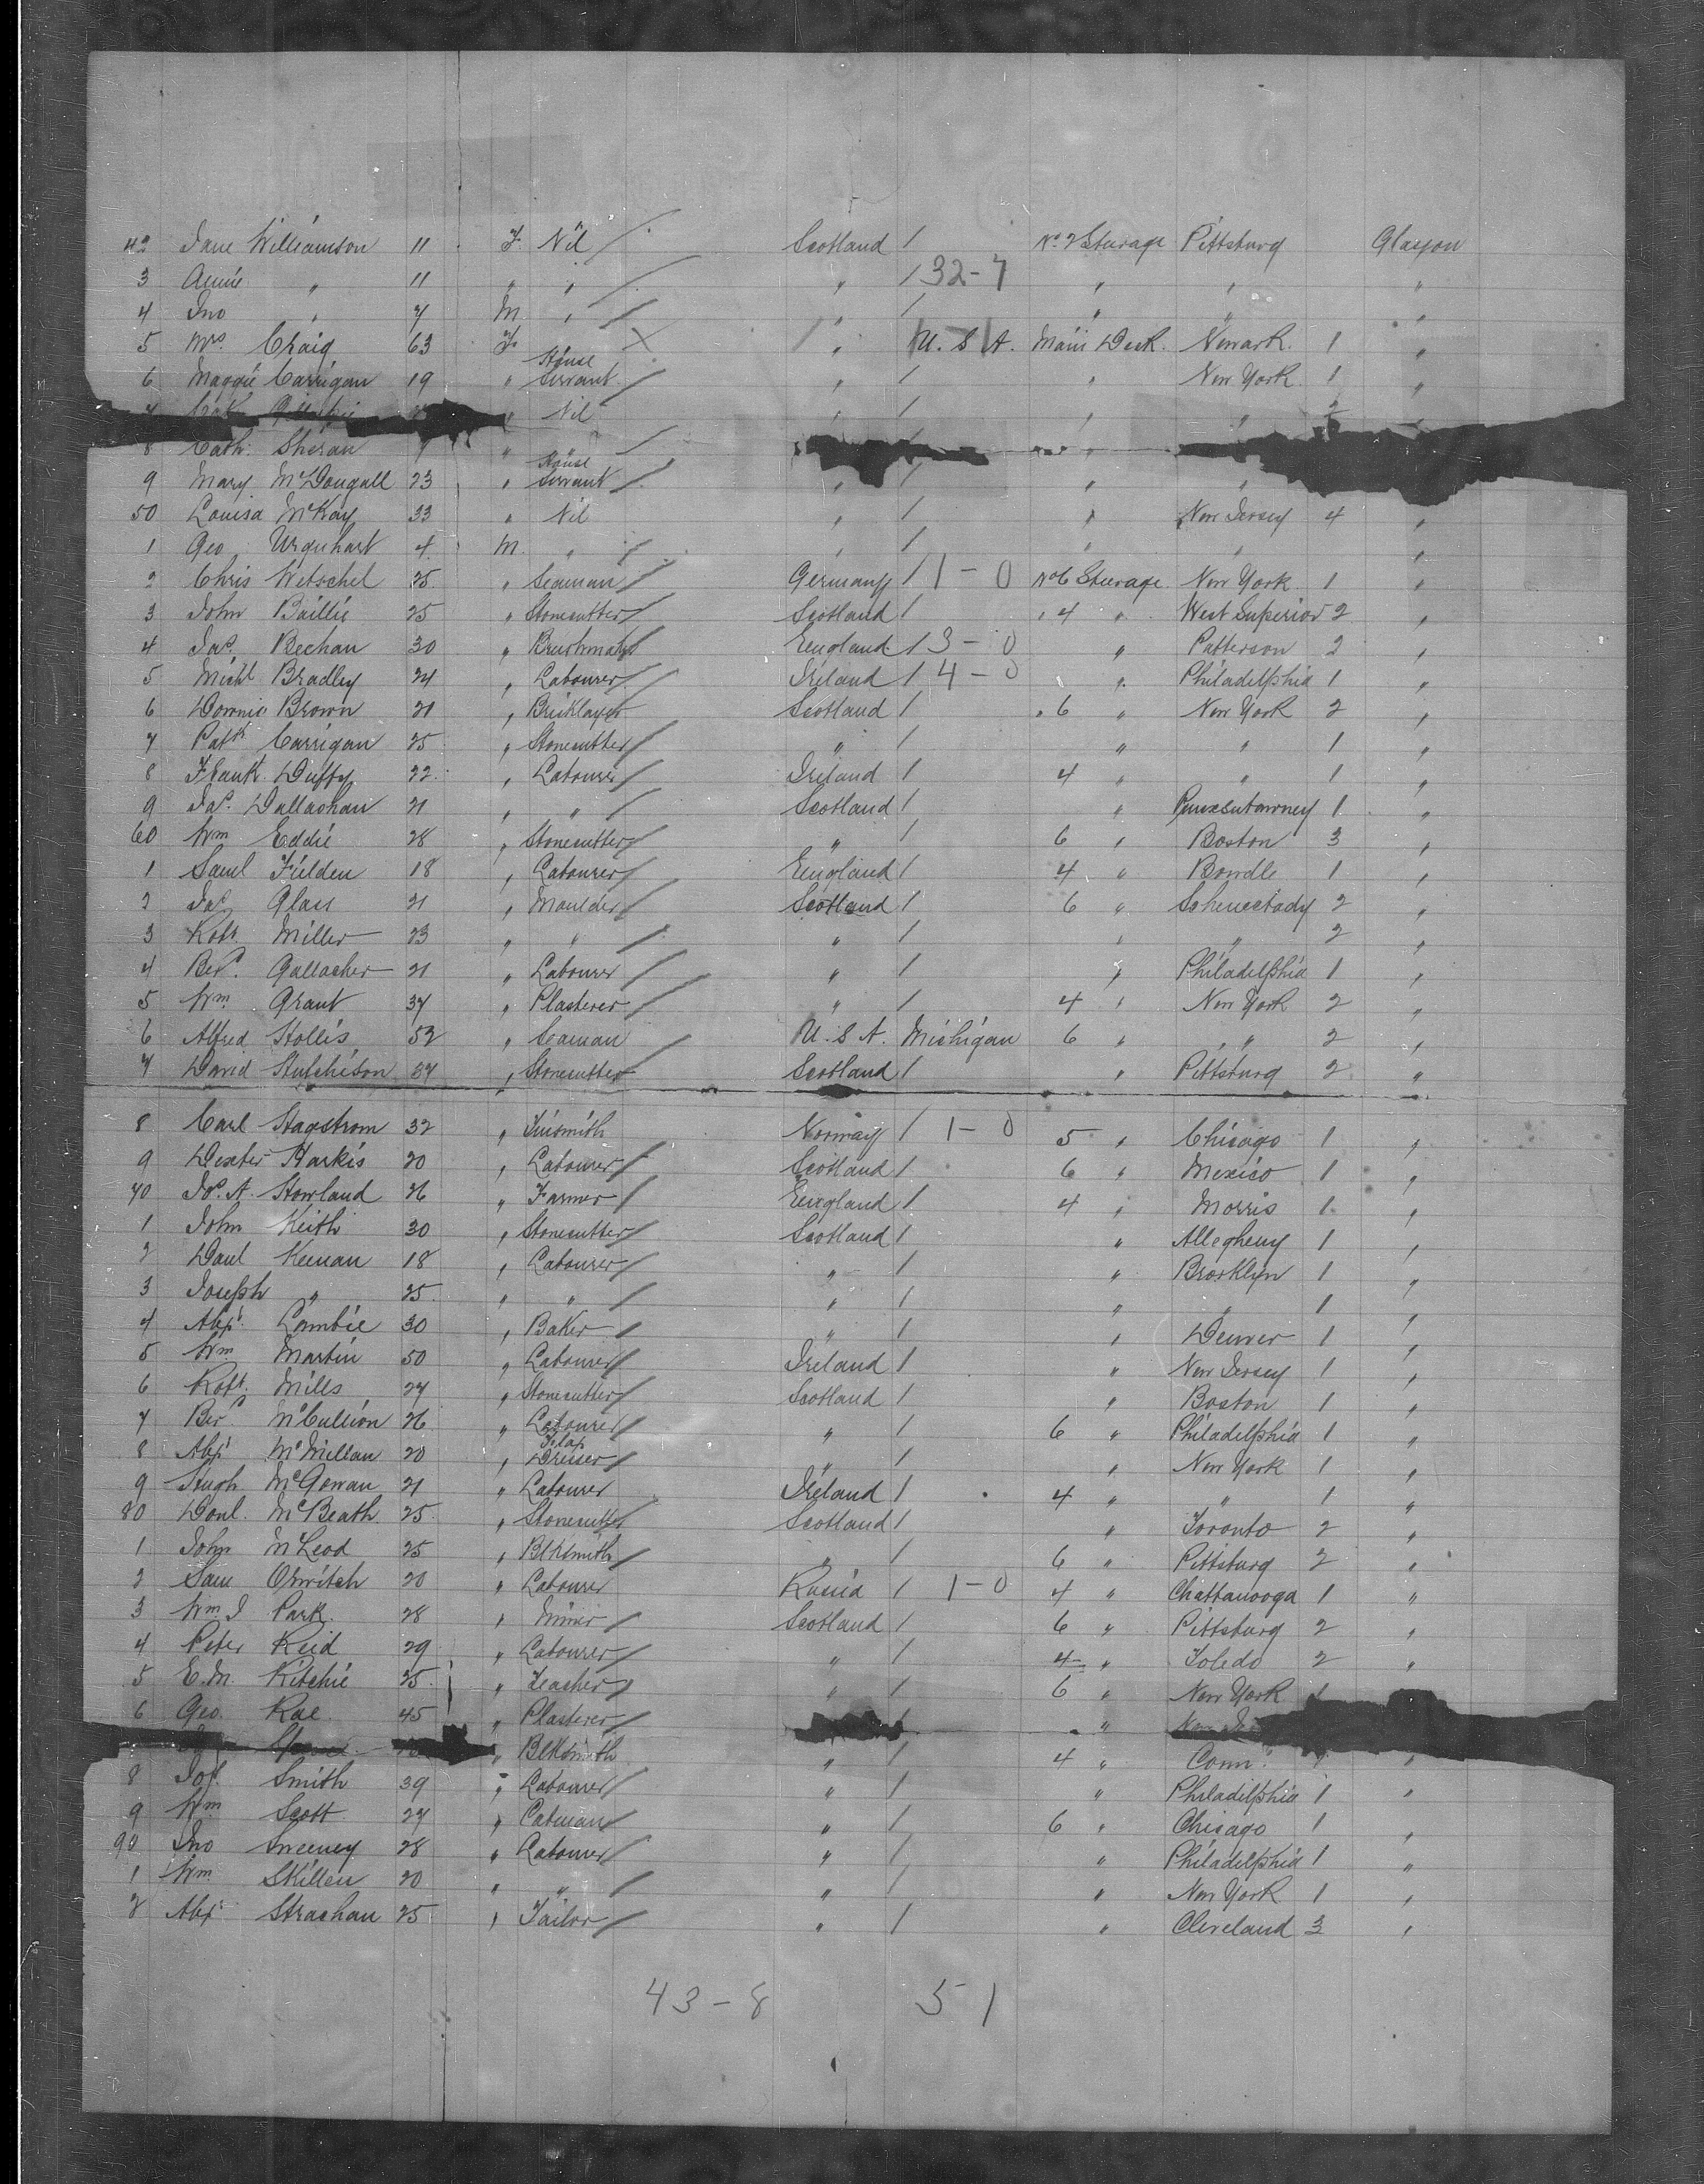 42 Jane Williamson 11 F. Nil / Scotland / No. 2 Steerage Pittsburg Glasgow
3 Annie " 11 " " / " / 32-7 " " "
4 Jno " 7 M. " / " / " " "
5 Mrs. Craig 63 F X " U.S.A. Main Deck. Newark. 1 "
6 Maggie Carrigan 19 " House Servant / " / " New York. 1 "
7 " Nil " / " " 2 "
8 Cath. Sheran " /
9 Mary McDougall 23 " House Servant / " / " "
50 Louisa McKay 33 " Nil " / " New Jersey 4 "
1 Geo Urquhart 4 M. " / " / " " "
2 Chris Wetschel 25 " Seaman / Germany / 1-0 No 6 Steerage New York 1 "
3 John Baillie 25 " Stonecutter / Scotland / " 4 " West Superior 2 "
4 Jas. Bechan 30 " Brushmaker England / 3-0 " Patterson 2 "
5 Michl Bradley 24 " Labourer / Ireland / 4-0 " Philadelphia 1 "
6 Dominic Brown 21 " Bricklayer Scotland / " 6 " New York 2 "
7 Patk. Carrigan 25 " Stonecutter / " / " " 1 "
8 Frank Duffy 22 " Labourer / Ireland / 4 " " 1 "
9 Jas. Dallaghan 21 " " / Scotland / " Punxsutawney 1 "
60 Wm Eddie 28 " Stonecutter / " / 6 " Boston 3 "
1 Saml Fielden 18 " Labourer / England / 4 " Bowdle 1 "
2 Jas Glass 21 " Moulder / Scotland / 6 " Schenectady 2 "
3 Robt. Miller 23 " " / " / " " 2 "
4 Berd. Gallacher 21 " Labourer / " / " Philadelphia 1 "
5 Wm. Grant 37 " Plasterer / " / 4 " New York 2 "
6 Alfred Hollis 52 " Seaman U.S.A. Michigan 6 " " 2 "
7 David Hutchison 37 " Stonecutter Scotland / " Pittsburg 2 "
8 Carl Hagstrom 32 " Tinsmith Norway / 1-0 5 " Chicago 1 "
9 Dexter Harkis 20 " Labourer / Scotland / 6 " Mexico 1 "
70 Jos. A. Howland 26 " Farmer / England / 4 " Morris 1 "
1 John Keith 30 " Stonecutter / Scotland / " Allegheny 1 "
2 Danl Keenan 18 " Labourer / " / " Brooklyn 1 "
3 Joseph " 25 " " / " / " " 1 "
4 Alexr. Lambie 30 " Baker / " / " Denver 1 "
5 Wm Martin 50 " Labourer / Ireland / " New Jersey 1 "
6 Robt. Mills 27 " Stonecutter / Scotland / " Boston 1 "
7 Berd McCullion 26 " Labourer / " / 6 " Philadelphia 1 "
8 Alexr McMillan 20 " Flax Dresser / " / " New York 1 "
9 Hugh McGowan 21 " Labourer Ireland / 4 " " 1 "
80 Donl. McBeath 25 " Stonecutter Scotland / " Toronto 2 "
1 John McLeod 25 " Blksmith / " / 6 " Pittsburg 2 "
2 Sam Orwitch 20 " Labourer Russia / 1-0 4 " Chattanooga 1 "
3 Wm J Park 28 " Miner / Scotland / 6 " Pittsburg 2 "
4 Peter Reid 29 " Labourer / " / 4 " Toledo 2 "
5 E.M. Ritchie 25 " Teacher / " / 6 " New York 1
6 Geo. Rae 45 " Plasterer / "
" Blksmith " / 4 " Conn. 1 "
8 Jos. Smith 39 " Labourer / " / " Philadelphia 1 "
9 Wm Scott 27 " Carman / " / 6 " Chicago 1 "
90 Jno Sweeney 28 " Labourer / " / " Philadelphia 1 "
1 Wm. Skillen 20 " " / " / " New York 1 "
2 Alexr Strachan 25 " Tailor / " / " Cleveland 3 "
43-8 51